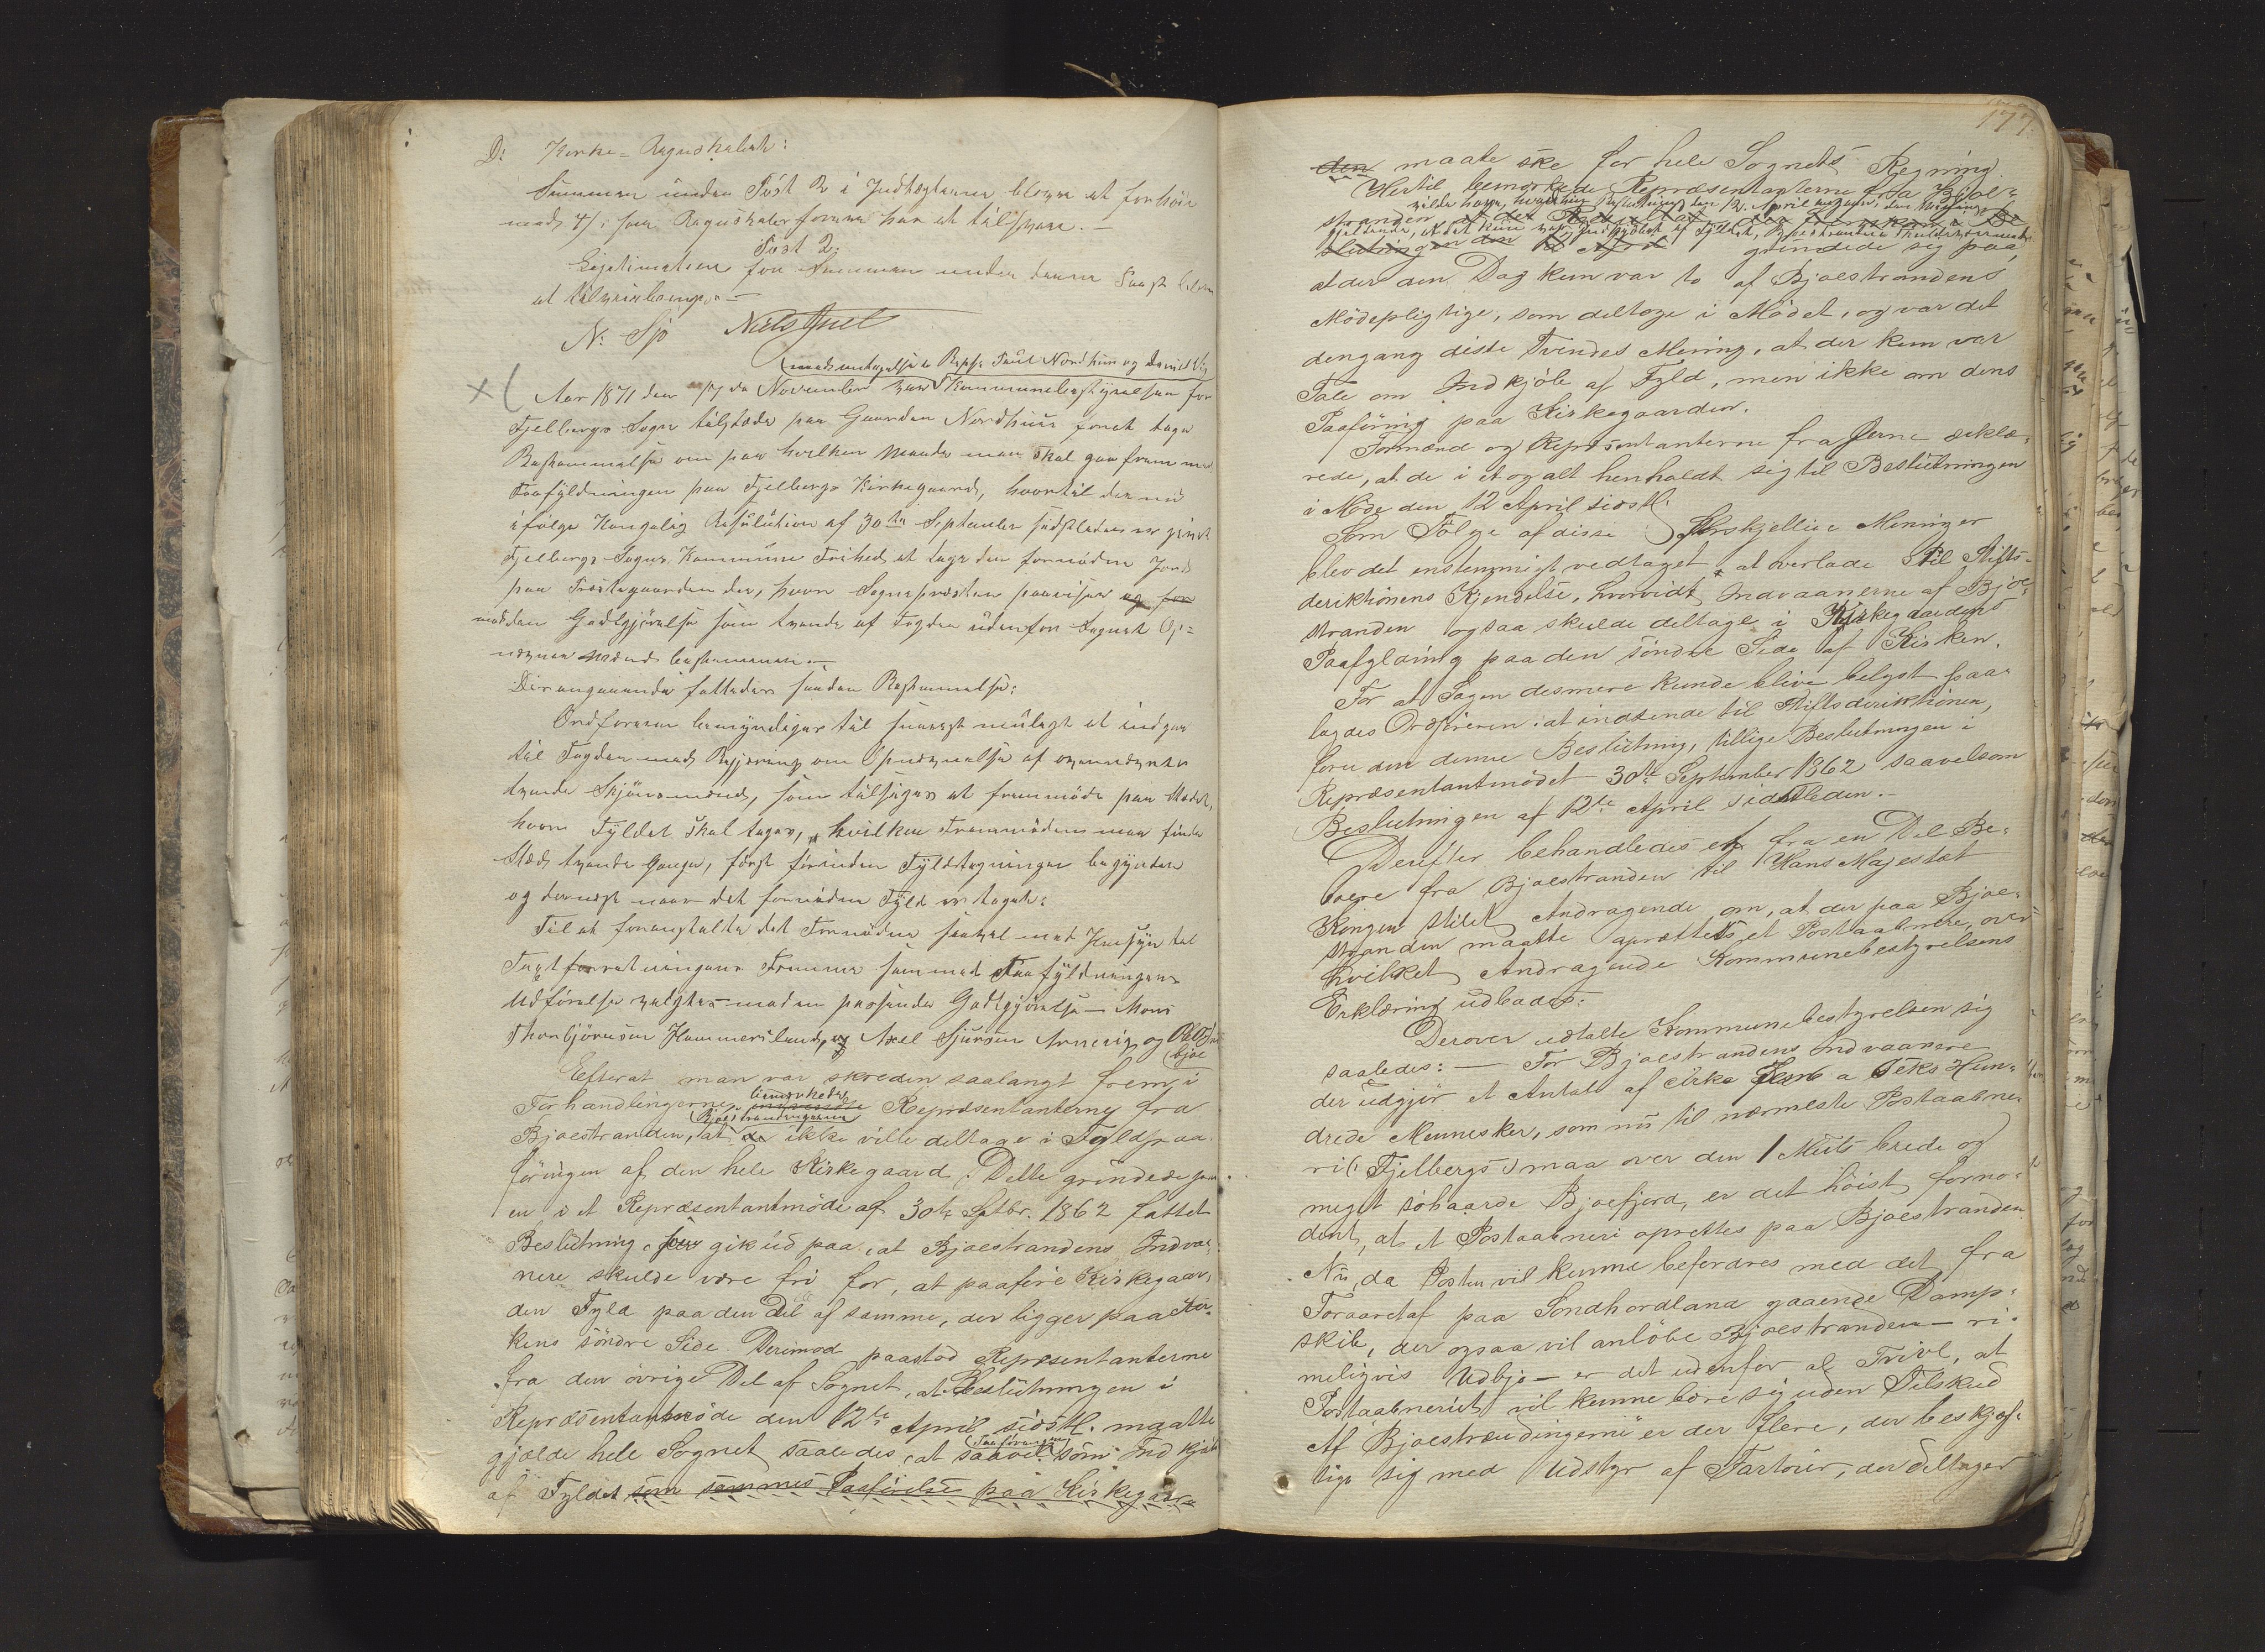 D: Kirke-Regnskabet:
Summen under Post 2 i Indtægterne bliver at forhöie
med 4 s. som Regnskabsföreren har at tilsvare. -
Post 2.
Legitimation for Summen under denne Post bliver
at tilveiebringe. -
N. Sjo Niels Juel
(med undtagelse Repr. Poul Nordhuus og
Aar 1871 den 17de November var Kommunebestyrelsen for
Fjelbergs Sogn tilstede paa Gaarden Nordhuus foret tage
Bestemmelse om paa hvilken Maade man skal gaa frem med
Paafyldningen paa Fjelbergs Kirkegaard, hvortil der nu
ifölge Kongelig Resulution af 30te September sidstleden er givet
Fjelbergs Sogns Kommune Frihed at tage den fornödne Jord
paa Præstegaarden der, hvor Sognepresten paaviser og for
mod den Godtgjörelse som tvende af Fogden udenfor Sognet Op-
nævnte Mænd bestemmer.
Derangaaende fattedes saadan Bestemmelse:
Ordföreren bemyndiges til snarest mulegt at indgaa
til Fogden med Begjæring om Opnævnelse af ovennævnte
tvende Skjönsmænd, som tilsiges at fremmöde paa Stedet,
hvor Fyldet skal tages, hvilken Fremmöden maa finde
Sted tvende Gange, först förinden Fyldtagningen begynder
og dernæst naar det fornödne Fyld er taget:
Til at foranstalte det Fornödne saavel med Hensyn til
Fremme som med Paafyldningens
Udförelse valgtes - mod en passende Godtgjörelse - Mons
Thorbjörnsen Hammersland, og Axel Sjursen Arnevig og Ole
bjoe
Efterat man var skreden saalangt frem i
Forhandlingerne, bemærkede Repræsentanterne fra
Bjoestranden, at Bjoestrandingerne de ikke ville deltage i Fyldpaa-
föringen af den hele Kirkegaard; Dette gründede paa
en i et Repræsentantmöde af 30te Sptbr. 1862 fattet
Beslutning, som gik ud paa, at Bjoestrandens Indvaa-
nere skulde være fri for, at paaföre Kirkegaar-
den Fyld paa den Del af samme, der ligger paa Kir-
kens söndre Side. Derimod paastod Repræsentanterne
fra den övrige Del af Sognet, at Beslutningen i
Repræsentantmöde den 12te April sidstl. maatte
gjælde hele Sognet saaledes, at saavel Paaföringen som Indkjöb
af Fyldet som sammes Paaförelse paa Kirkegaar-
177.
den maate ske for hele Sognets Regning.
Hertil bemærkede Repræsentanterne fra Bjoe-
vilde have, hvad Beslutningen den 12. April angaar, den Mening
stranden,
gjeldende, at det kun var Indkjöbet af Fyldet, Bjoestranden skulde
slutningen den 12 April gründede sig paa,
at der den Dag kun var to af Bjoestrandens
Mödepligtige, som deltoge i Mödet, og var det
dengang disse Tvendes Mening, at der kun var
Tale om Indkjöb af Fyld, men ikke om dens
Paaföring paa Kirkegaarden.
Formænd og Repræsentanterne fra Øerne erklæ-
rede, at de i et og alt henholdt sig til Beslutningen
i Möde den 12 April sidstl.
Som Fölge af disse forskjellige Meninger
blev det enstemmigt vedtaget, at overlade til Stifts-
derektionens Kjendelse, hvorvidt Indvaanerne af Bjoe-
stranden ogsaa skulde deltage i Kirkegaardens
Paafyldning paa den söndre Side af Kirken.
For at Sagen desmere kunde blive belyst paa-
lagdes Ordföreren: at indsende til Stiftsderektionen,
foruden denne Beslutning, tillige Beslutningen i
Repræsentantmödet 30te September 1862 saavelsom
Beslutningen af 12te April sidstleden. -
Derefter behandledes et fra en Del Be-
boere fra Bjoestranden til Hans Majestæt
Kongen stilet Andragende om, at der paa Bjoe-
stranden maatte oprettes et Postaabneri, over
hvilket Andragende Kommunebestyrelsens
Erklæring udbades:
Derover udtalte Kommunebestyrelsen sig
saaledes: - For Bjoestrandens Indvaanere
der udgjör et Antal af cirka Fem a Seks Hun-
drede Mennesker, som nu til nærmeste Postaabne-
ri (Fjelbergs) maa over den 1 Miils brede og
meget söhaarde Bjoefjord, er det höist fornö-
dent, at et Postaabneri oprettes paa Bjoestranden
Nu, da Posten vil kunne befordres med det fra
Foraaret af paa Söndhordland gaaende Damp-
skib, der ogsaa vil anlöbe Bjoestranden - ri-
meligvis Udbjo - er det udenfor al Tvivl, at
Postaabneriet vil kunne bære sig uden Tilskud
Af Bjoestrandingerne er der flere, der beskjæf-
tige sig med Udstyr af Fartöier, der deltager